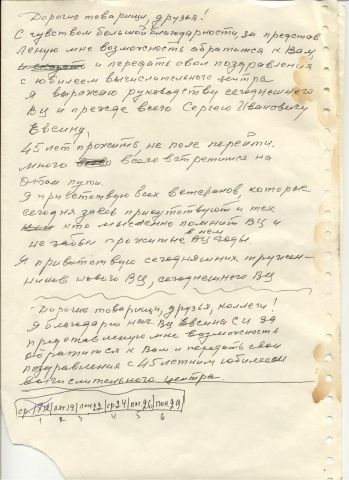 Дорогие товарищи, друзья!
С чувством большой благодарности, за представ
ленную мне возможность обратится к Вам,
и передать свои поздравления
с юбилеем вычислительного центра
Я выражаю руководству сегоднешнего
ВЦ и прежде всего Сергею Ивановичу
Евсину,
45 лет прожить, не поле перейти.
много всего встретится на
этом пути.
Я приветствую всех ветеранов, которые
сегодня здесь присутствуют и тех
кто мысленно помнит ВЦ и
не забыл прожитые в нем годы
Я приветствую сегодняшних тружен-
ников нового ВЦ, сегоднешнего ВЦ
Дорогие товарищи, друзья, коллеги!
Я благодарю нач. ВЦ Евсина С И за
представленную мне возможность
обратится к Вам и передать свои
поздравления с 45летним юбилеем
вычислительного центра
ср 17/18 пят 19 пон 22 ср 24 пят 26 пон 29
1 2 3 4 5 6